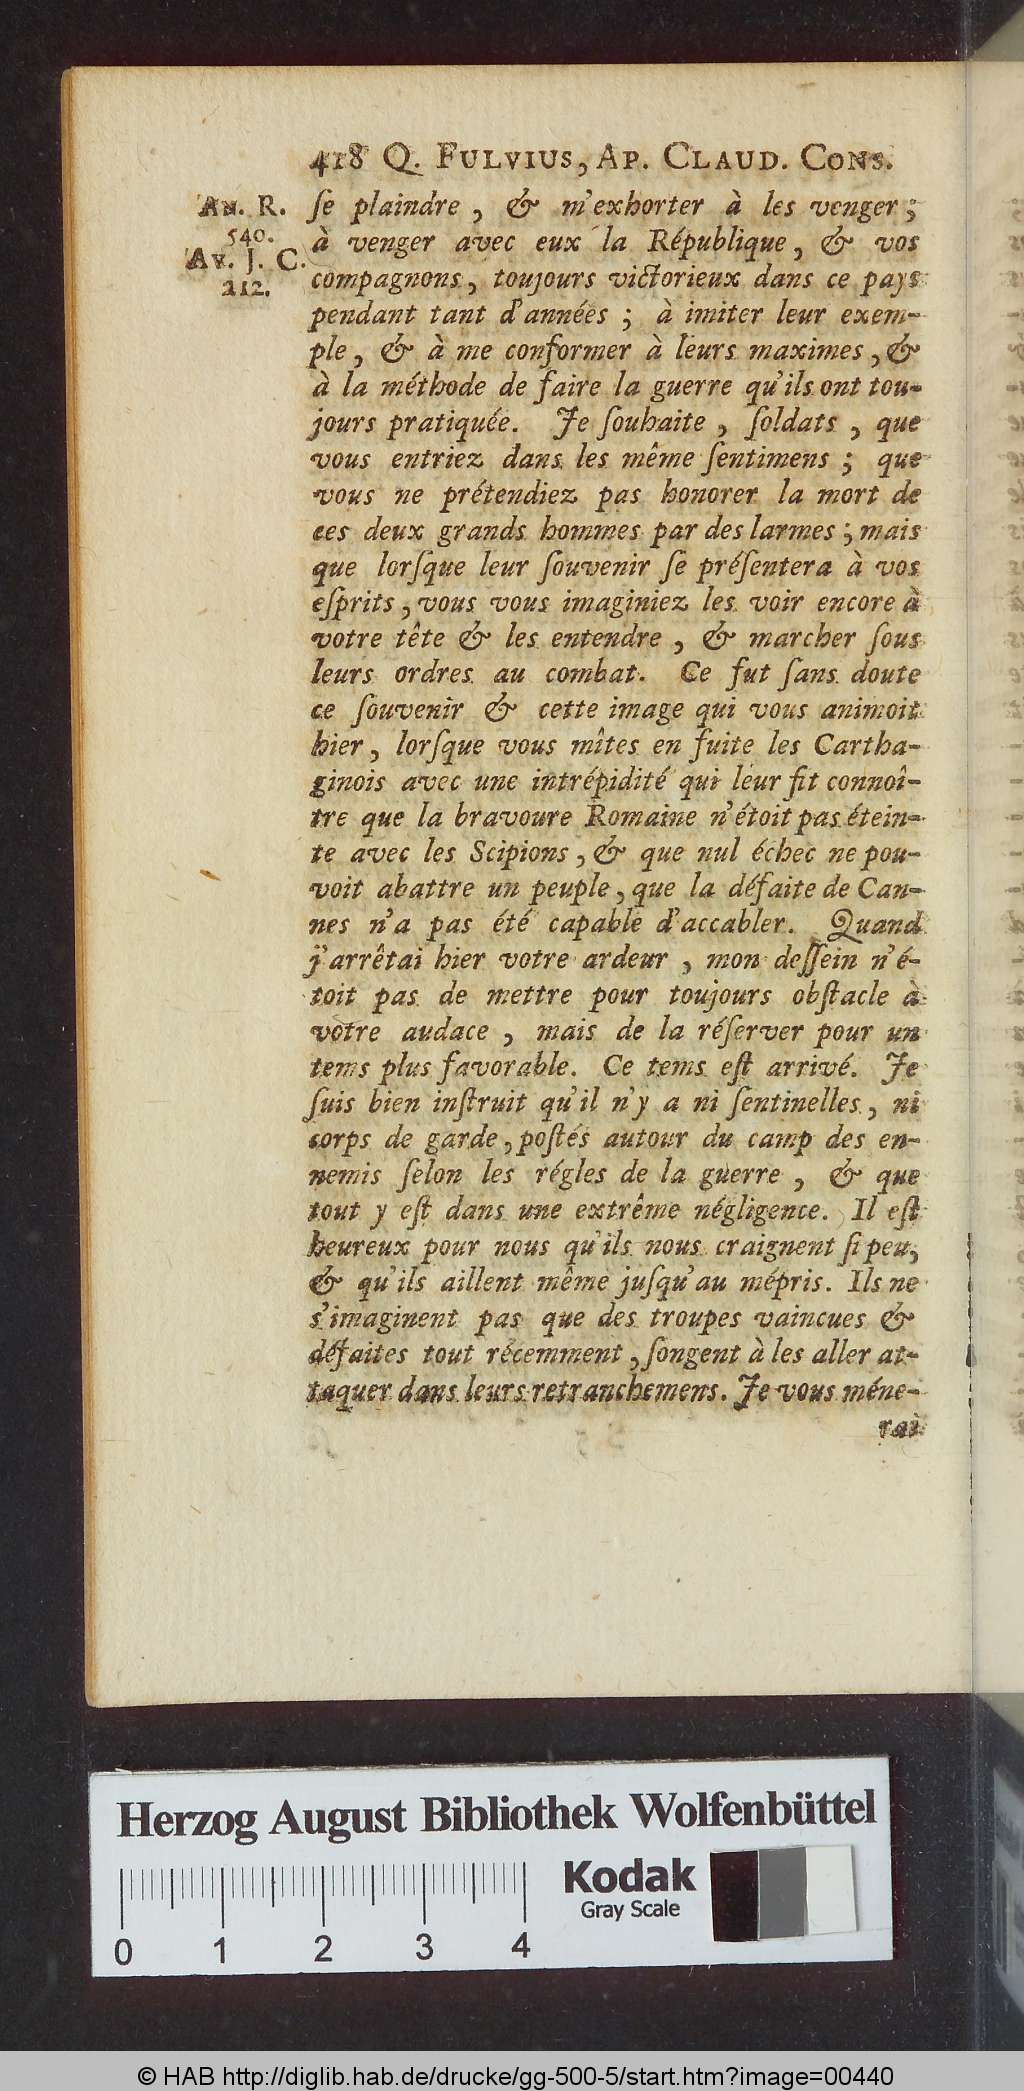 418 Q. FULVIUS, AP. CLAUD. CONS.
An. R.
540.
Av. J. C.
212.
se plaindre, & m'exhorter à les venger;
à venger avec eux la République, & vos
compagnons, toujours victorieux dans ce pays
pendant tant d'années; à imiter leur exem-
ple, & à me conformer à leurs maximes, &
à la méthode de faire la guerre qu'ils ont tou-
jours pratiquée. Je souhaite, soldats, que
vous entriez dans les même sentimens; que
vous ne prétendiez pas honorer la mort de
ces deux grands hommes par des larmes; mais
que lorsque leur souvenir se présentera à vos
esprits, vous vous imaginiez les voir encore à
votre tête & les entendre, & marcher sous
leurs ordres au combat. Ce fut sans doute
ce souvenir & cette image qui vous animoit
hier, lorsque vous mîtes en fuite les Cartha-
ginois avec une intrépidité qui leur fit connoî-
tre que la bravoure Romaine n'étoit pas étein-
te avec les Scipions, & que nul échec ne pou-
voit abattre un peuple, que la défaite de Can-
nes n'a pas été capable d'accabler. Quand
j'arrêtai hier votre ardeur, mon dessein n'é-
toit pas de mettre pour toujours obstacle à
votre audace, mais de la réserver pour un
tems plus favorable. Ce tems est arrivé. Je
suis bien instruit qu'il n'y a ni sentinelles, ni
corps de garde, postés autour du camp des en-
nemis selon les régles de la guerre, & que
tout y est dans une extrême négligence. Il est
heureux pour nous qu'ils nous craignent si peu,
& qu'ils aillent même jusqu'au mépris. Ils ne
s'imaginent pas que des troupes vaincues &
défaites tout récemment, songent à les aller at-
taquer dans leurs retranchemens. Je vous méne-
rai
Herzog August Bibliothek Wolfenbüttel
Kodak
Gray Scale
0 1 2 3 4
© HAB http://diglib.hab.de/drucke/gg-500-5/start.htm?image=00440